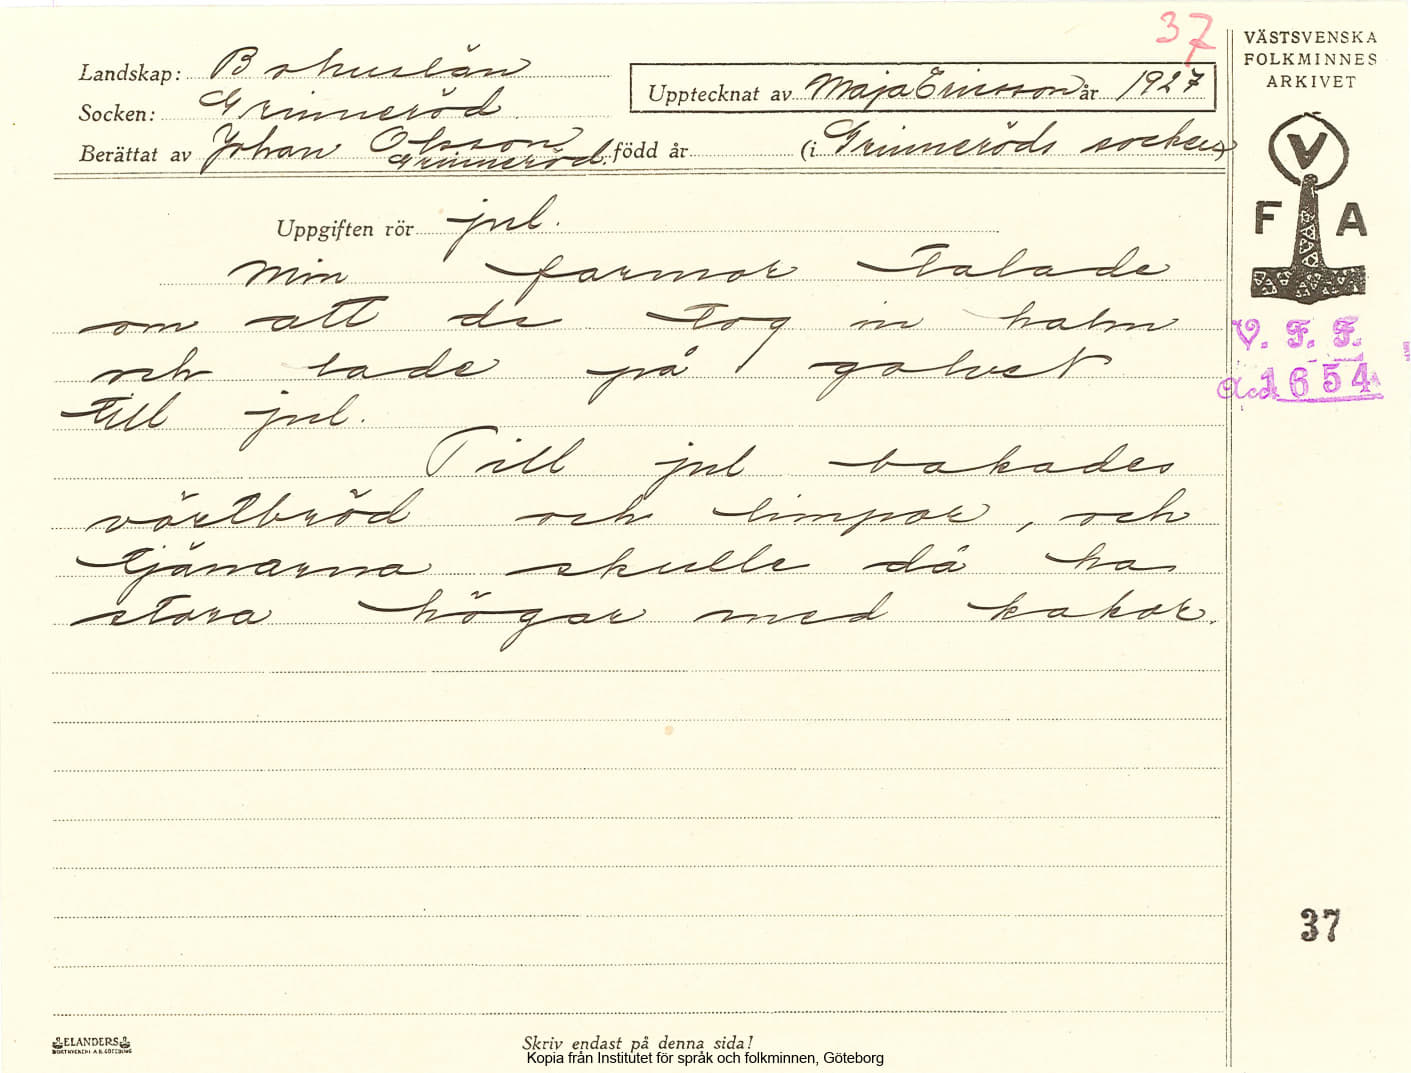 37
VÄSTSVENSKA
FOLKMINNES
ARKIVET
Landskap: Bohuslän
Upptecknat av Maja Ericsson år 1927
Socken: Grinneröd
Berättat av Johan Olsson Grinneröd, född år (i Grinneröds socken)
V
F A
Uppgiften rör jul.
Min farmor talade
om att de tog in halm
och lade på golvet
till jul.
V. F. F.
Acc. 1654
Till jul bakades
vörtbröd och limpor, och
tjänarna skulle då ha
stora högar med kakor.
37
ELANDERS
BOKTRYCKERI A.B. GÖTEBORG
Skriv endast på denna sida!
Kopia från Institutet för språk och folkminnen, Göteborg